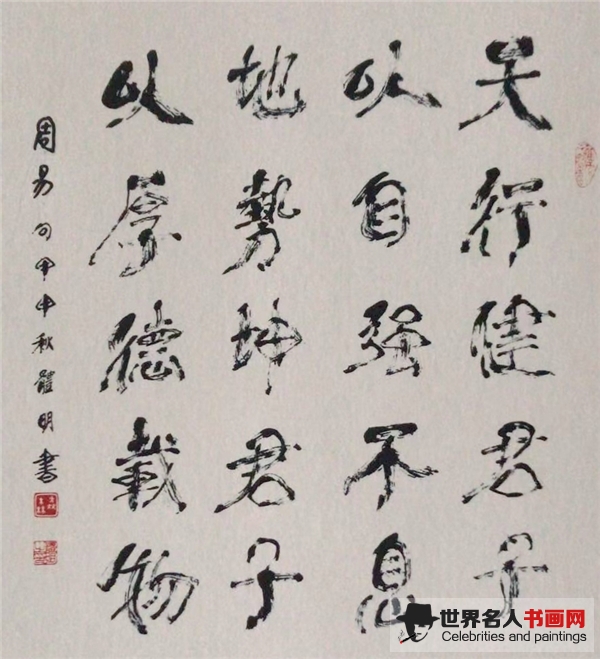 天行健君子
以自强不息
地勢坤君子
以厚德載物
周易句甲申秋體明書
世界名人书画网
Celebrities and paintings